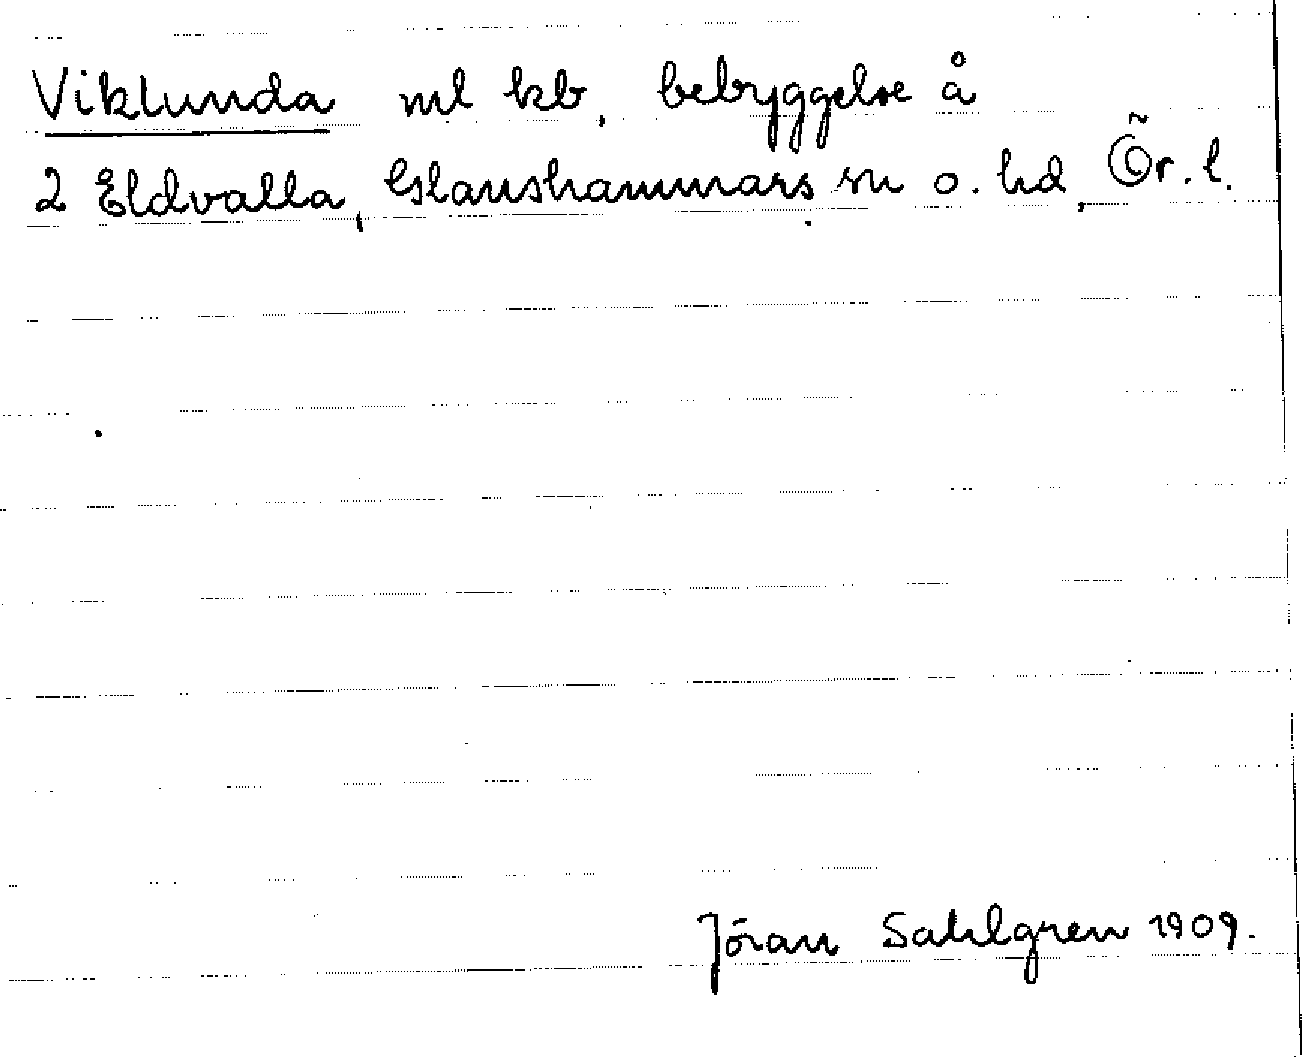 Viklunda ml kb, bebyggelse å
2 Eldvalla, Glanshammars sn o. hd, Ör. l.
Jöran Sahlgren 1909.